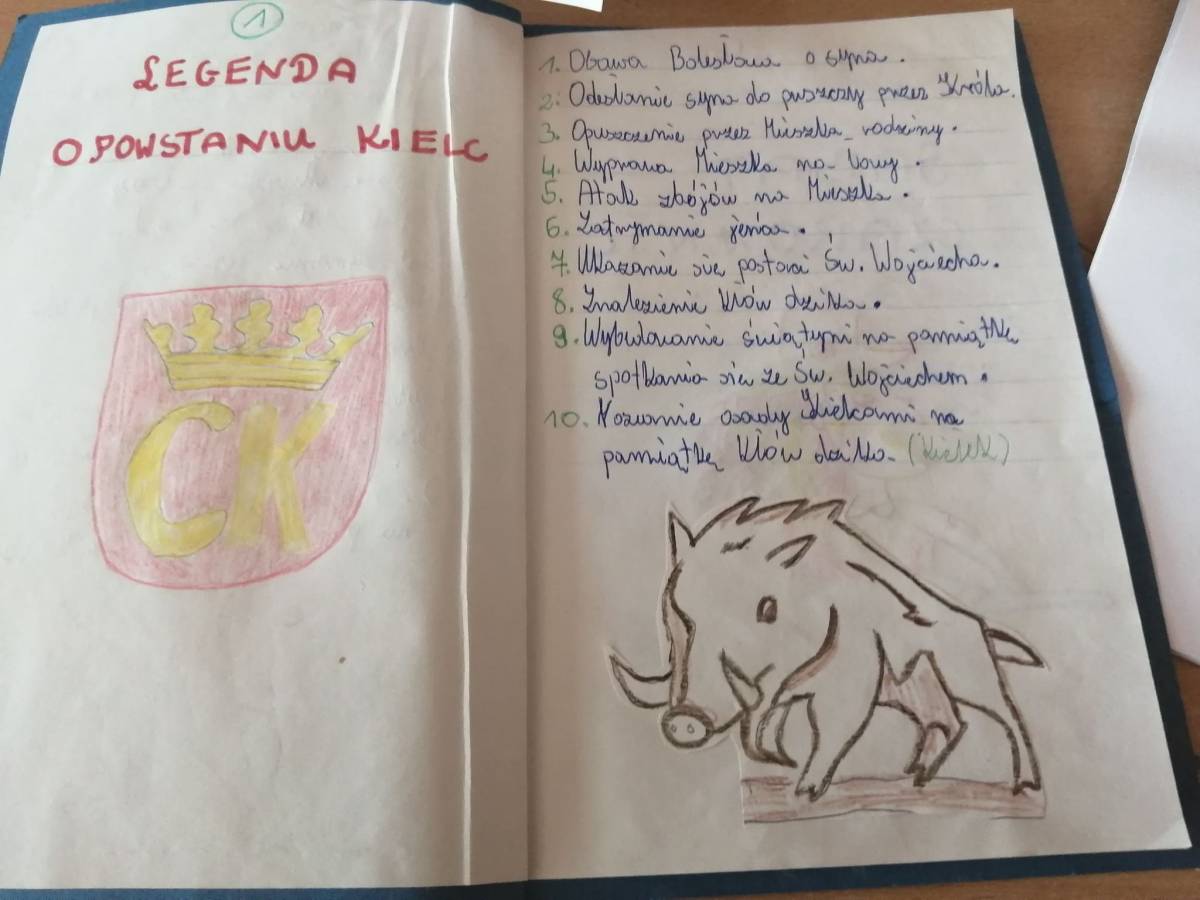 1
LEGENDA
O POWSTANIU KIELC
CK
1. Obawa Bolesława o syna.
2. Odesłanie syna do puszczy przez Króla.
3. Opuszczenie przez Mieszka rodziny.
4. Wyprawa Mieszka na łowy.
5. Atak zbójów na Mieszka.
6. Zatrzymanie jeńca.
7. Ukazanie się postaci Św. Wojciecha.
8. Znalezienie kłów dzika.
9. Wybudowanie świątyni na pamiątkę
spotkania się ze Św. Wojciechem.
10. Nazwanie osady Kielcami na
pamiątkę kłów dzika. (kiełek)